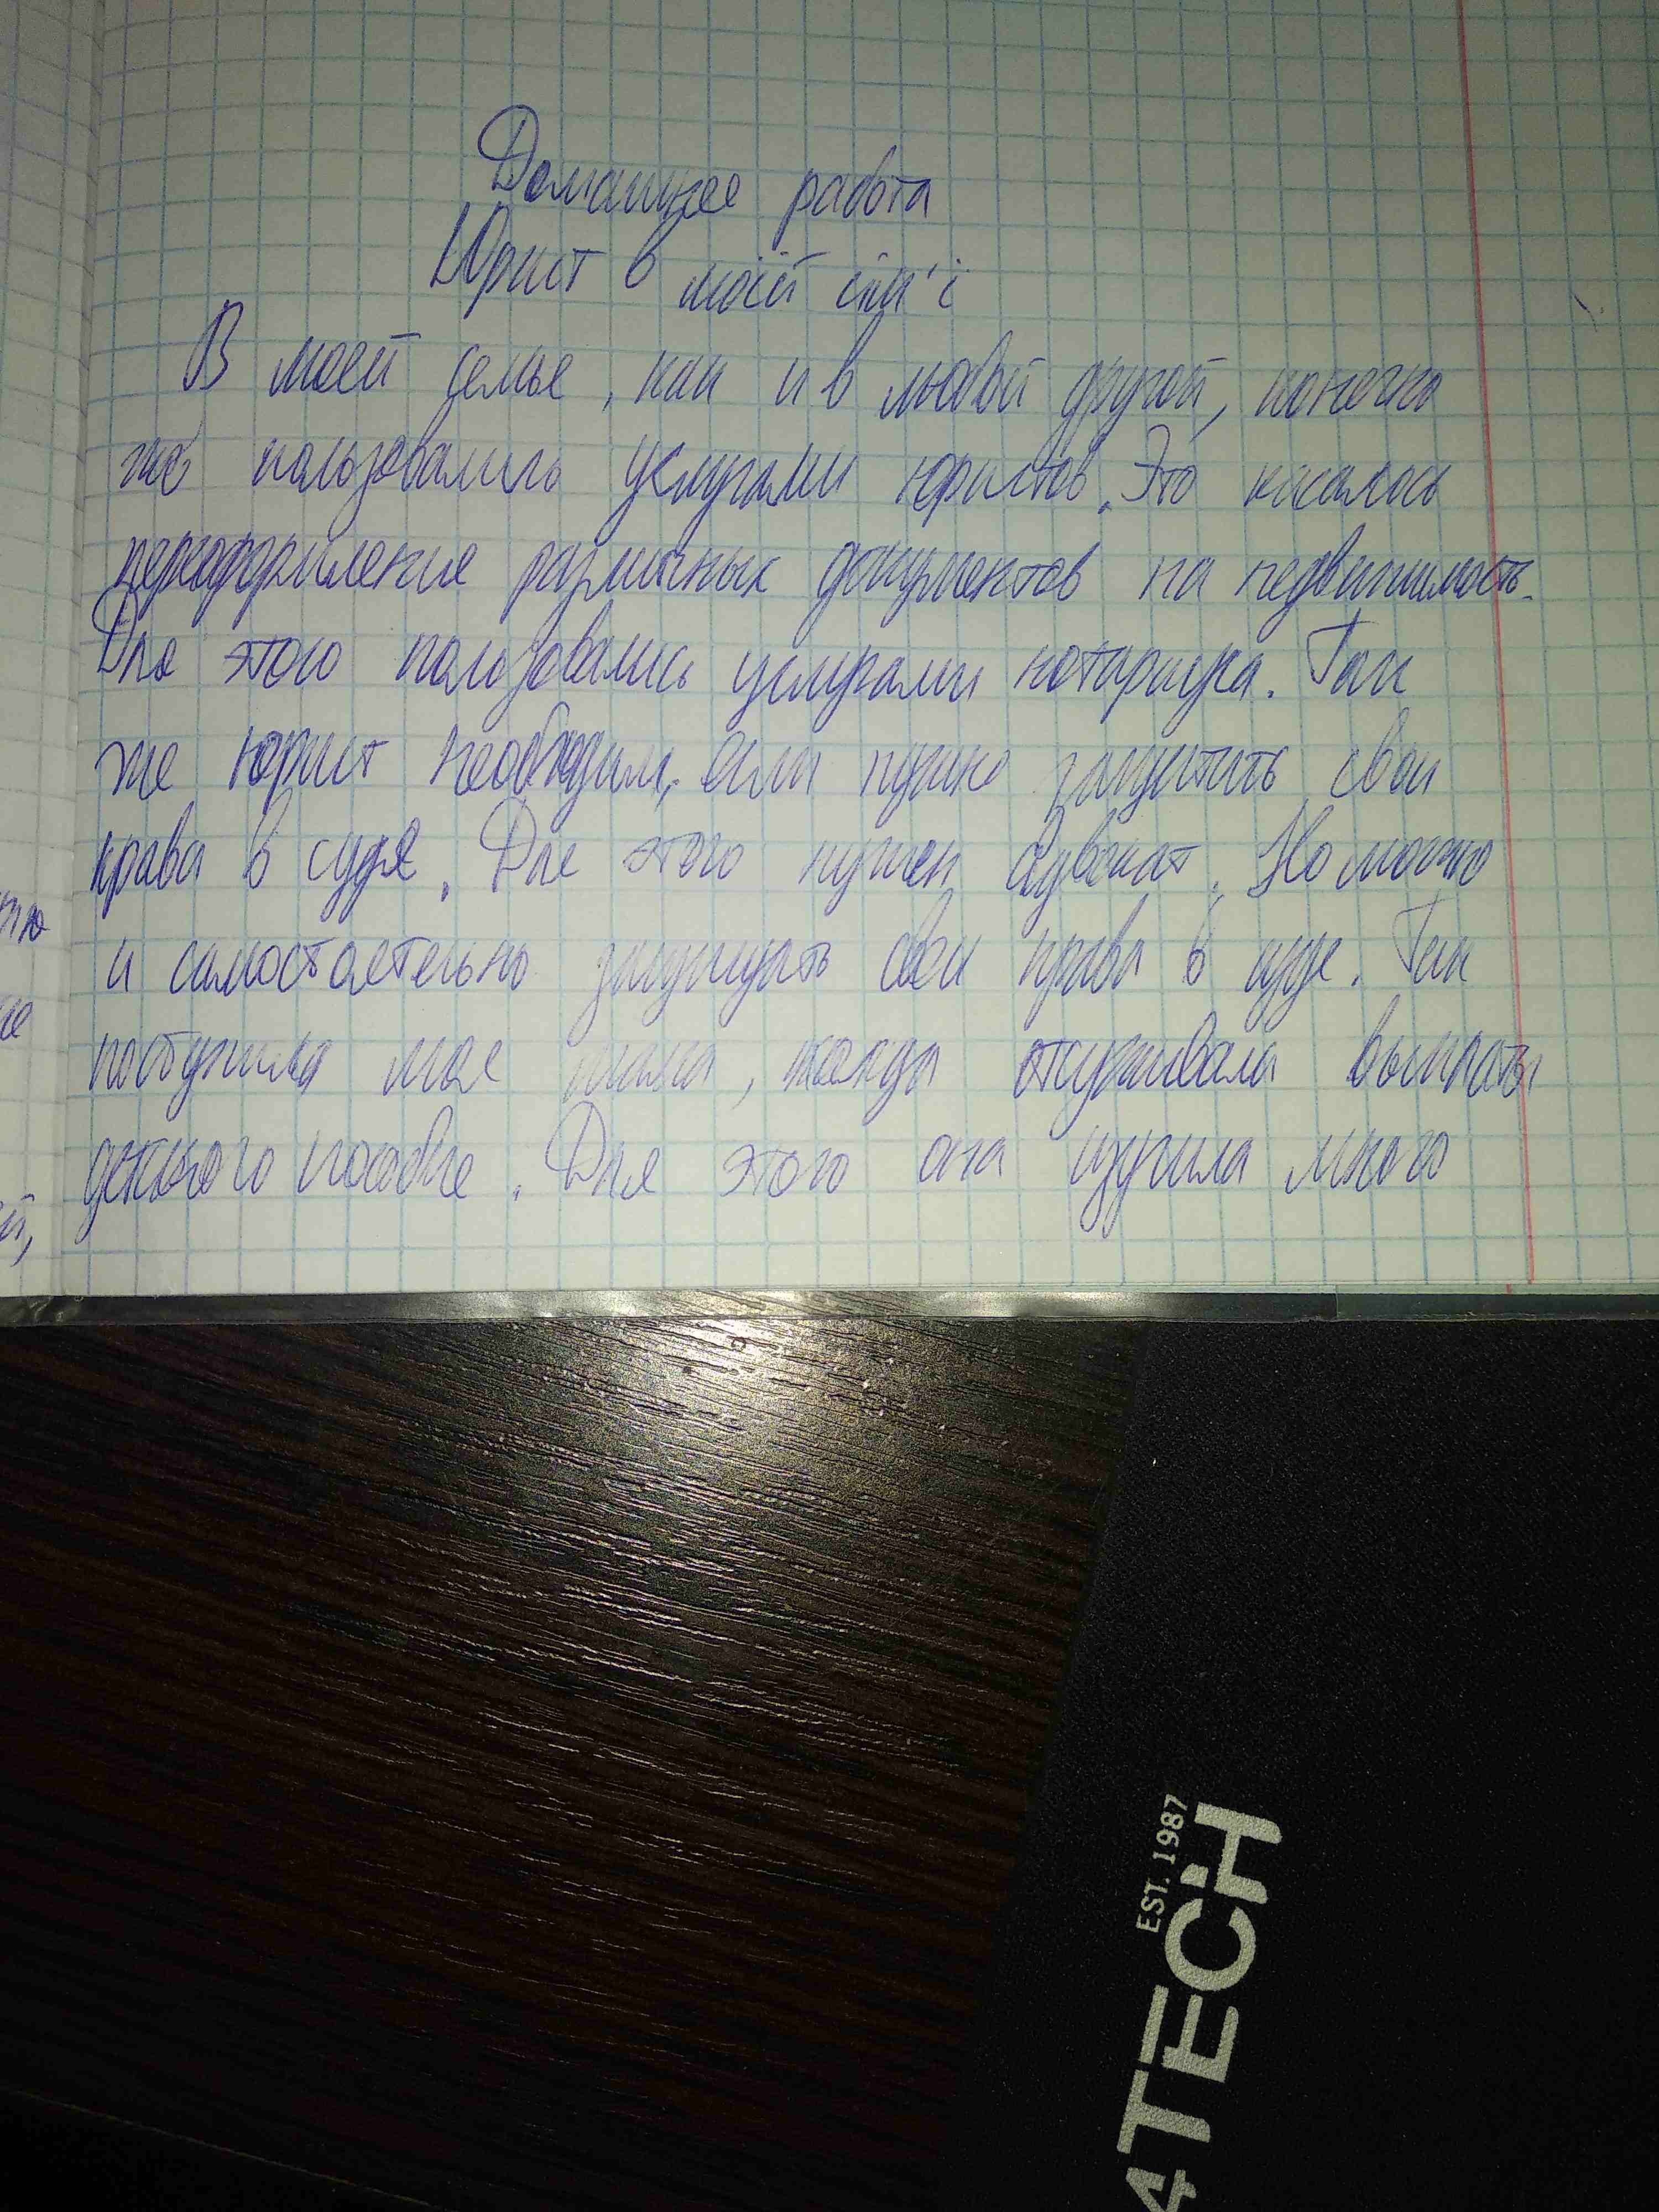 Домашнее работа
Юрист в моїй сім'ї
В моей семье, как и в любой другой, конечно
же пользовались услугами юристов. Это касалось
переоформление различных документов на недвижимость.
Для этого пользовались услугами нотариуса. Так
же юрист необходим, если нужно защитить свои
права в суде. Для этого нужен адвокат. Но можно
и самостоятельно защищать свои права в суде. Так
поступила моя мама, когда отсуживала выплаты
пособие. Для этого она изучила много
тью
й,
EST. 1987
4TECH